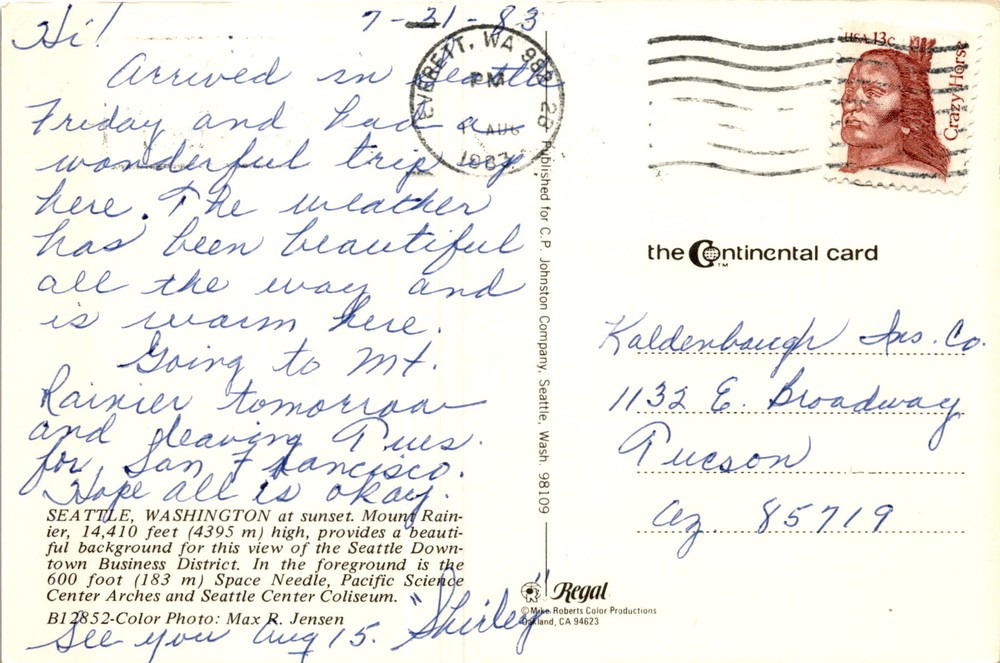 7-31-83
Hi!
Arrived in Seattle
Friday and had a
wonderful trip
here. The weather
has been beautiful
all the way and
is warm here.
Going to Mt.
Rainier tomorrow
and leaving Tues.
for San Francisco.
Hope all is okay.
SEATTLE, WASHINGTON at sunset. Mount Rain-
ier, 14,410 feet (4395 m) high, provides a beauti-
ful background for this view of the Seattle Down-
town Business District. In the foreground is the
600 foot (183 m) Space Needle, Pacific Science
Center Arches and Seattle Center Coliseum.
B12852-Color Photo: Max R. Jensen
See you Aug 15. "Shirley"
EVERETT, WA 982
PM
1 AUG
1983
Published for C.P. Johnston Company, Seattle, Wash. 98109
Regal
© Mike Roberts Color Productions
Oakland, CA 94623
USA 13c
Crazy Horse
the Continental card
TM
Kaldenbaugh Ins. Co.
1132 E. Broadway
Tucson
Az. 85719